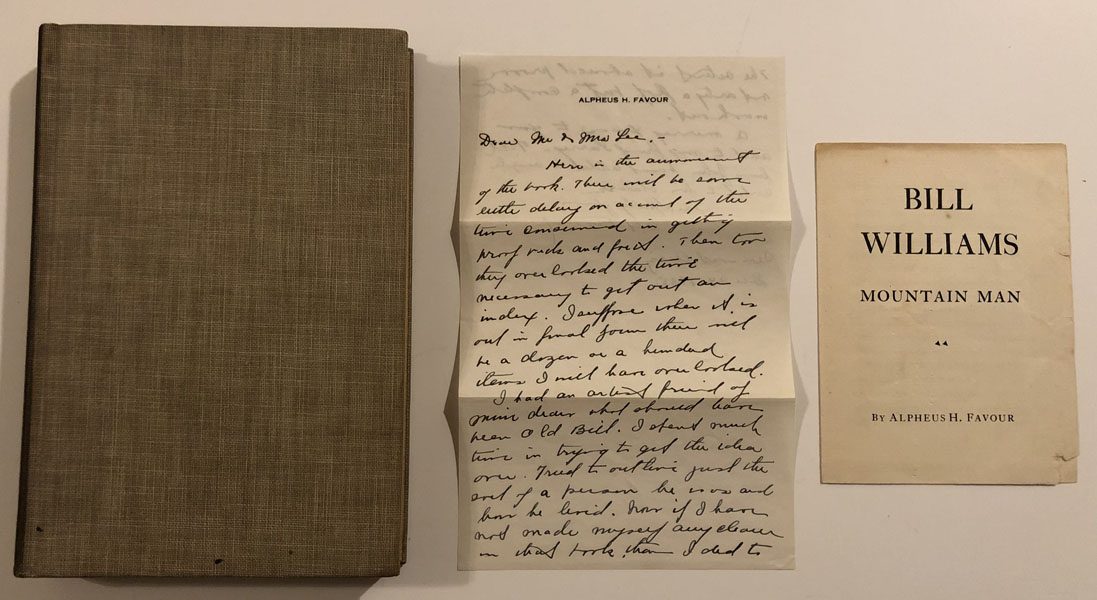 ALPHEUS H. FAVOUR
Dear Mr & Mrs Lee, –
Here is the announcement
of the book. There will be some
little delay on account of the
time consumed in getting
proof read and fixed. Then too
they overlooked the time
necessary to get out an
index. I suppose when it is
out in final form there will
be a dozen or a hundred
items I will have overlooked.
I had an artist friend of
mine draw what should have
been Old Bill. I spent much
time in trying to get the idea
over. Tried to outline just the
sort of a person he was and
how he lived. Now if I have
not made myself any clearer
in that book than I did to
BILL
WILLIAMS
MOUNTAIN MAN
BY ALPHEUS H. FAVOUR